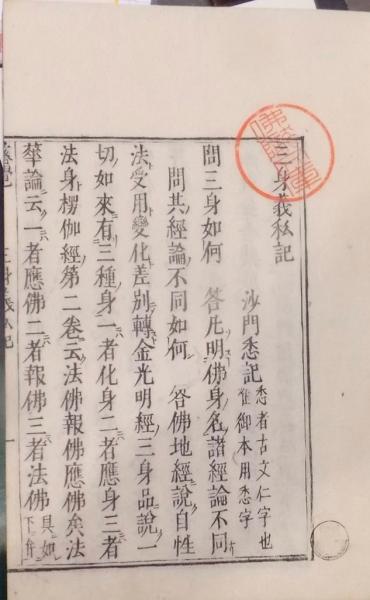 三身義私記
沙門忎記 忎者古文仁字也
雖御本用忎字
問三身如何 答凡明佛身名諸經論不同
問其經論不同如何 答佛地經說自性
法受用變化差別轉金光明經三身品說一
切如來有三種身一者化身二者應身三者
法身楞伽經第二卷云法佛報佛應佛矣法
華論云一者應佛二者報佛三者法佛 具如
下弁
三身義私記 一